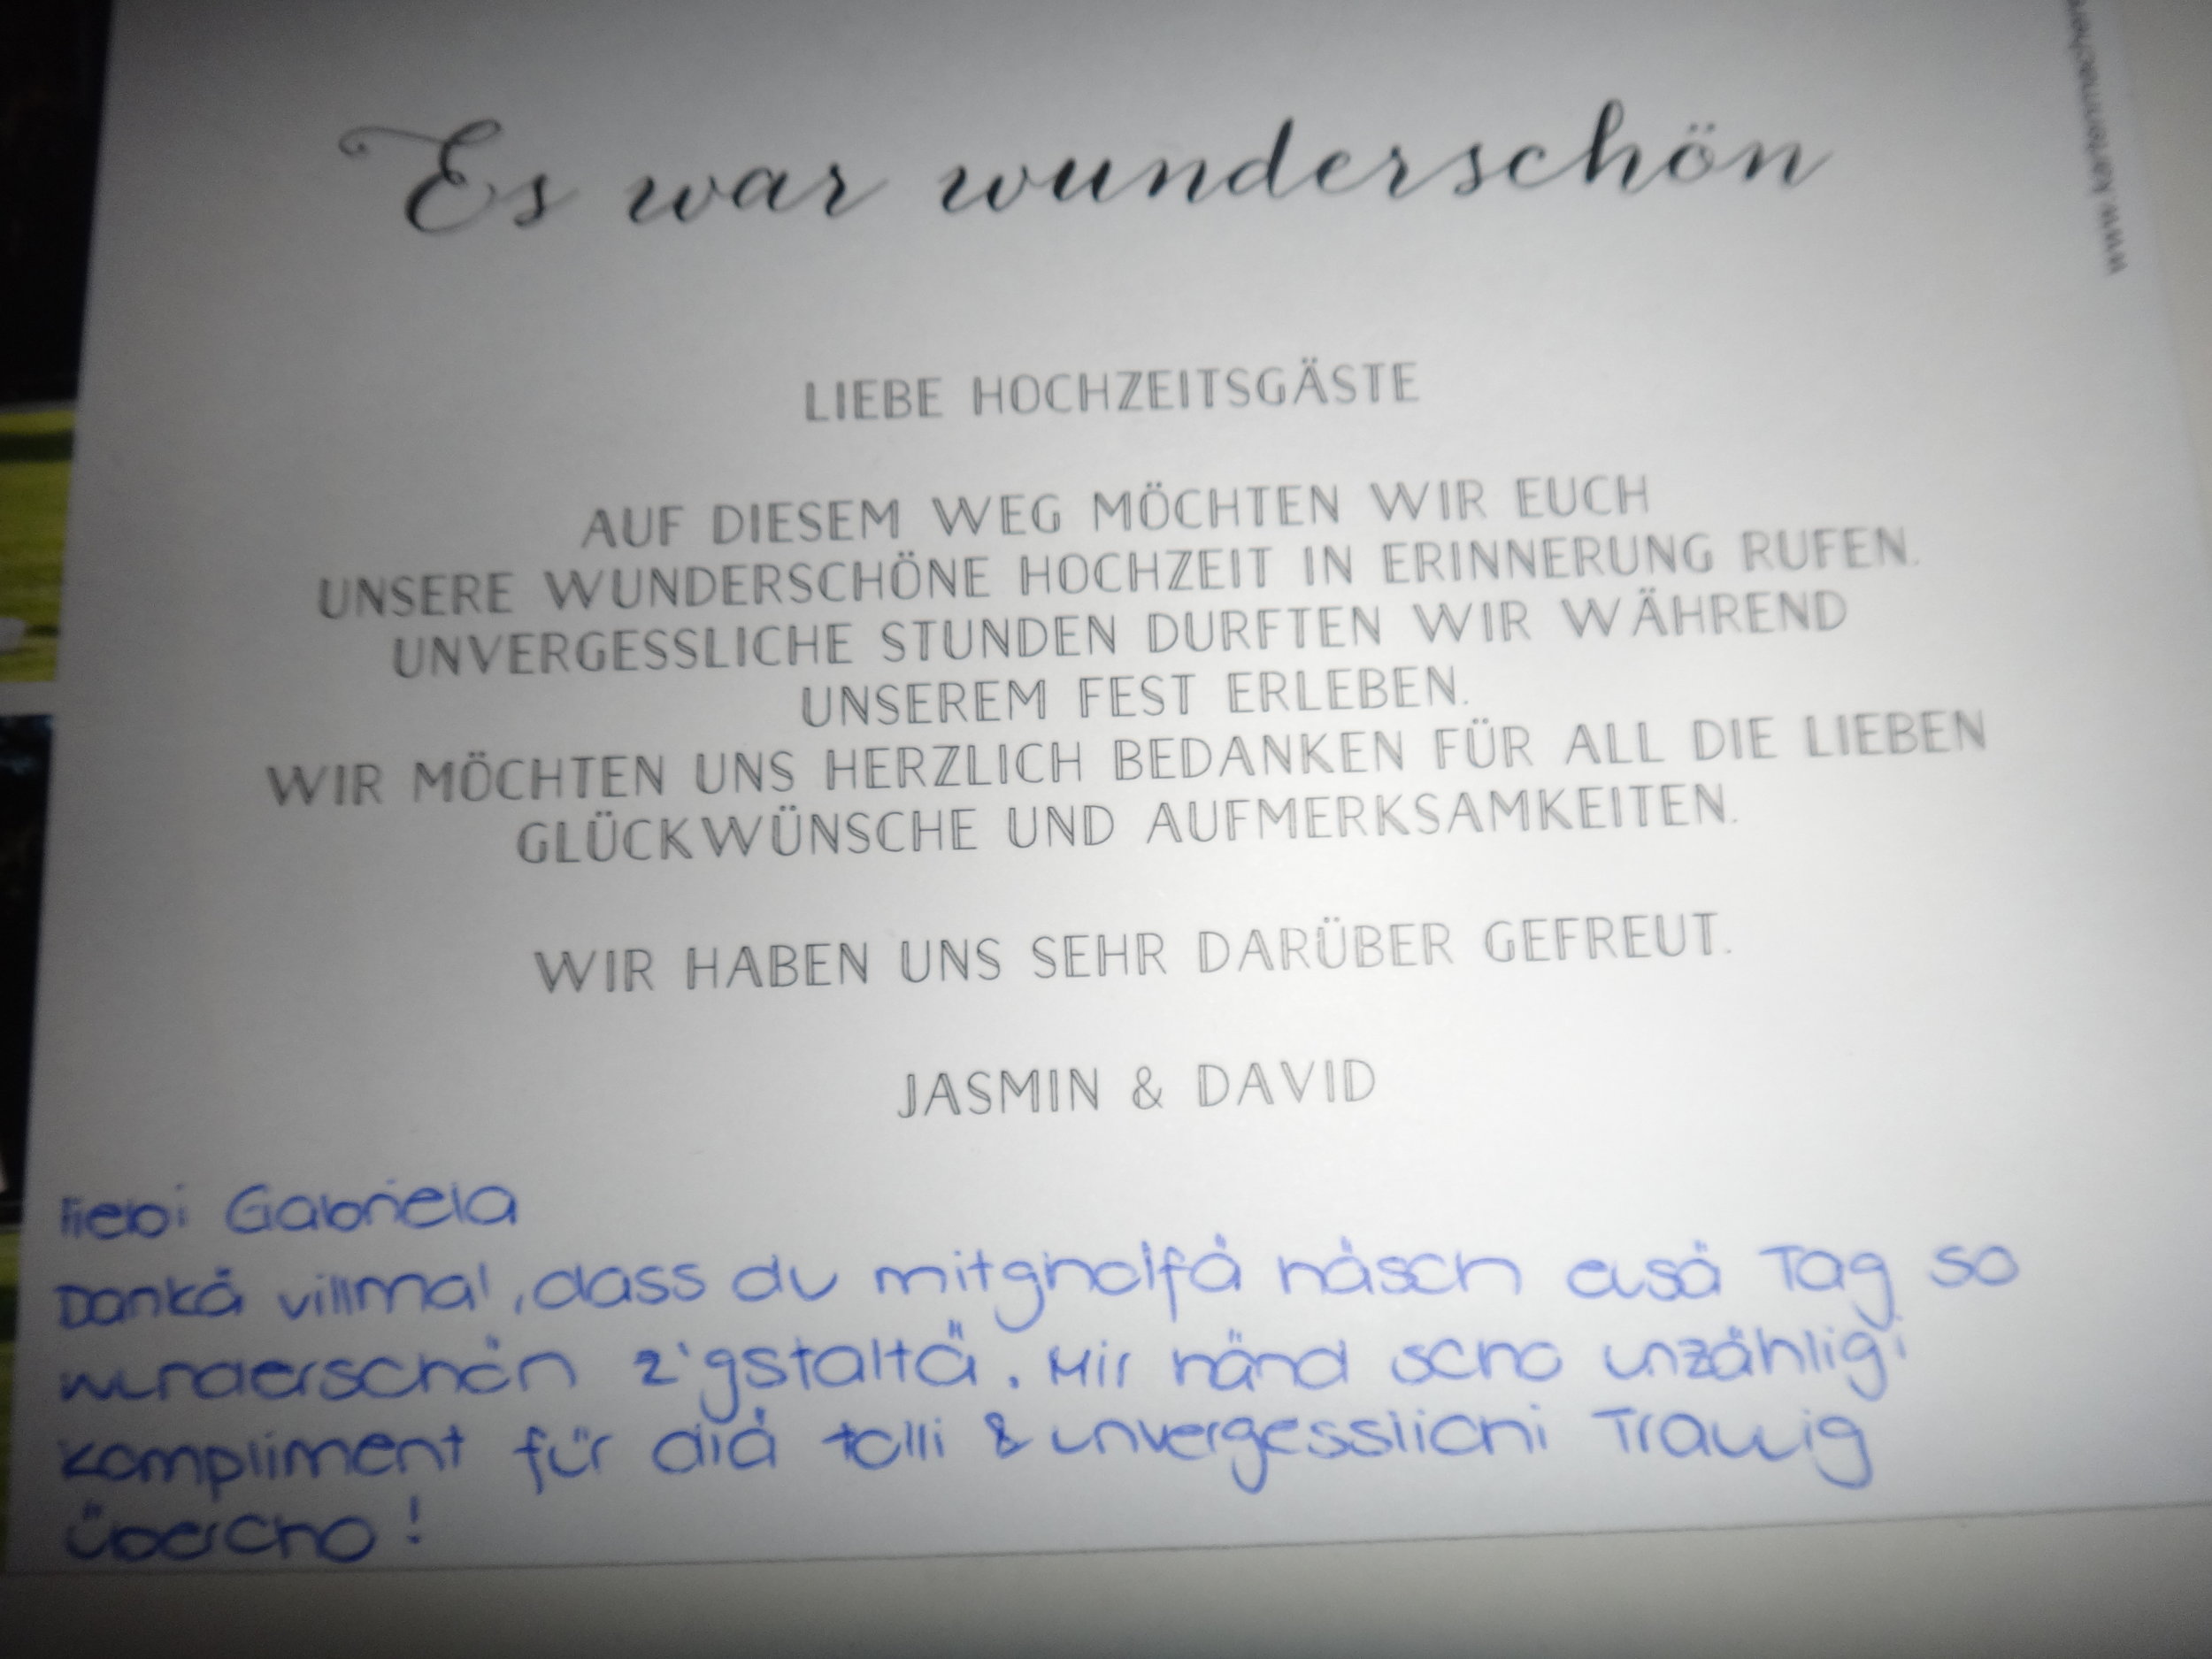 Es war wunderschön
LIEBE HOCHZEITSGÄSTE
AUF DIESEM WEG MÖCHTEN WIR EUCH
UNSERE WUNDERSCHÖNE HOCHZEIT IN ERINNERUNG RUFEN.
UNVERGESSLICHE STUNDEN DURFTEN WIR WÄHREND
UNSEREM FEST ERLEBEN.
WIR MÖCHTEN UNS HERZLICH BEDANKEN FÜR ALL DIE LIEBEN
GLÜCKWÜNSCHE UND AUFMERKSAMKEITEN.
WIR HABEN UNS SEHR DARÜBER GEFREUT.
JASMIN & DAVID
liebi Gabriela
Dankä villmal, dass du mitgholfä häsch eusä Tag so
wunderschön z'gstaltä. Mir händ scho unzähligi
Kompliment für diä tolli & unvergesslichi Trauig
übercho!